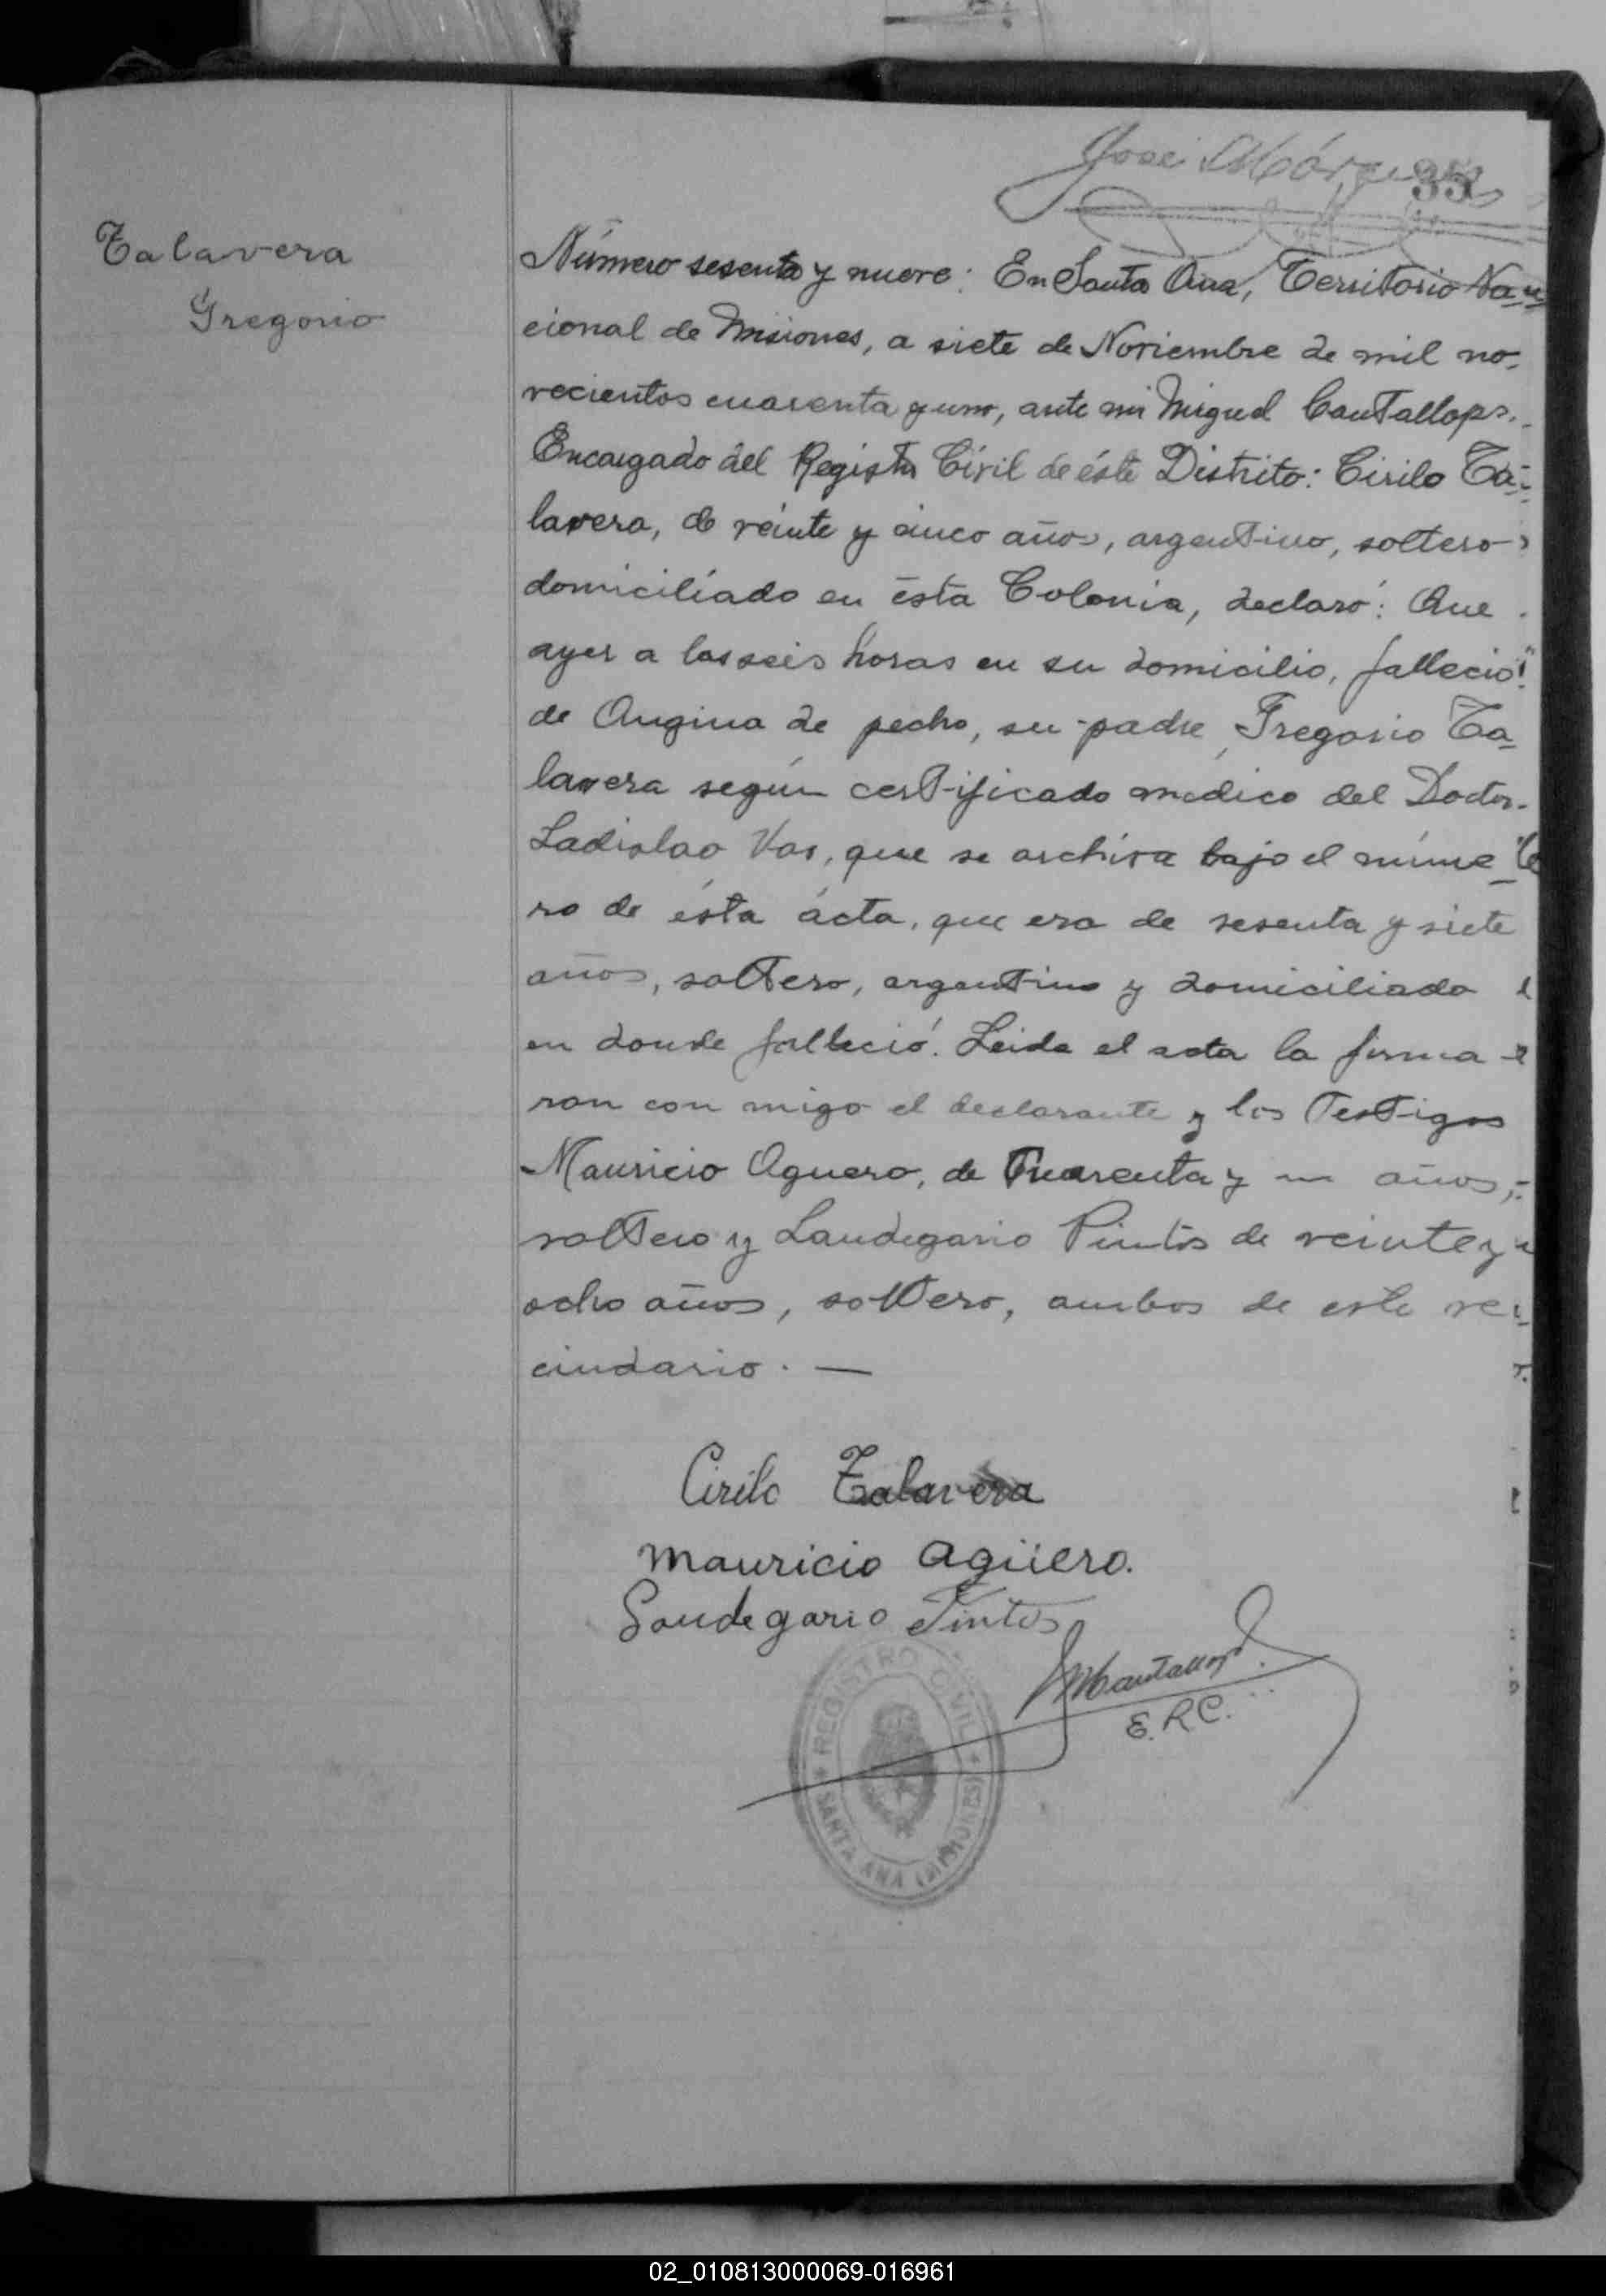 José
35
Talavera
Gregorio
Número sesenta y nueve: En Santa Ana, Territorio Na
cional de Misiones, a siete de Noviembre de mil no-
vecientos cuarenta y uno, ante mi Miguel Cantallops.
Encargado del Registro Civil de éste Distrito: Cirilo Ta-
lavera, de veinte y cinco años, argentino, soltero
domiciliado en ésta Colonia, declaró: Que
ayer a las seis horas en su domicilio, falleció
de Angina de pecho, su padre Gregorio Ta-
lavera según certificado médico del Doctor
Ladislao Vas, que se archiva bajo el núme
ro de ésta ácta, que era de sesenta y siete
años, soltero, argentino y domiciliado
en donde falleció. Leida el acta la firma
ron con migo el declarante y los Testigos
Mauricio Aguero, de Cuarenta y un años,
soltero y Laudegario Pintos de veinte y
ocho años, soltero, ambos de este ve
cindario. —
Cirilo Talavera
Mauricio Agüero.
Laudegario Pintos
MCantallops
E.R.C.
REGISTRO CIVIL
SANTA ANA (MISIONES)
02_010813000069-016961